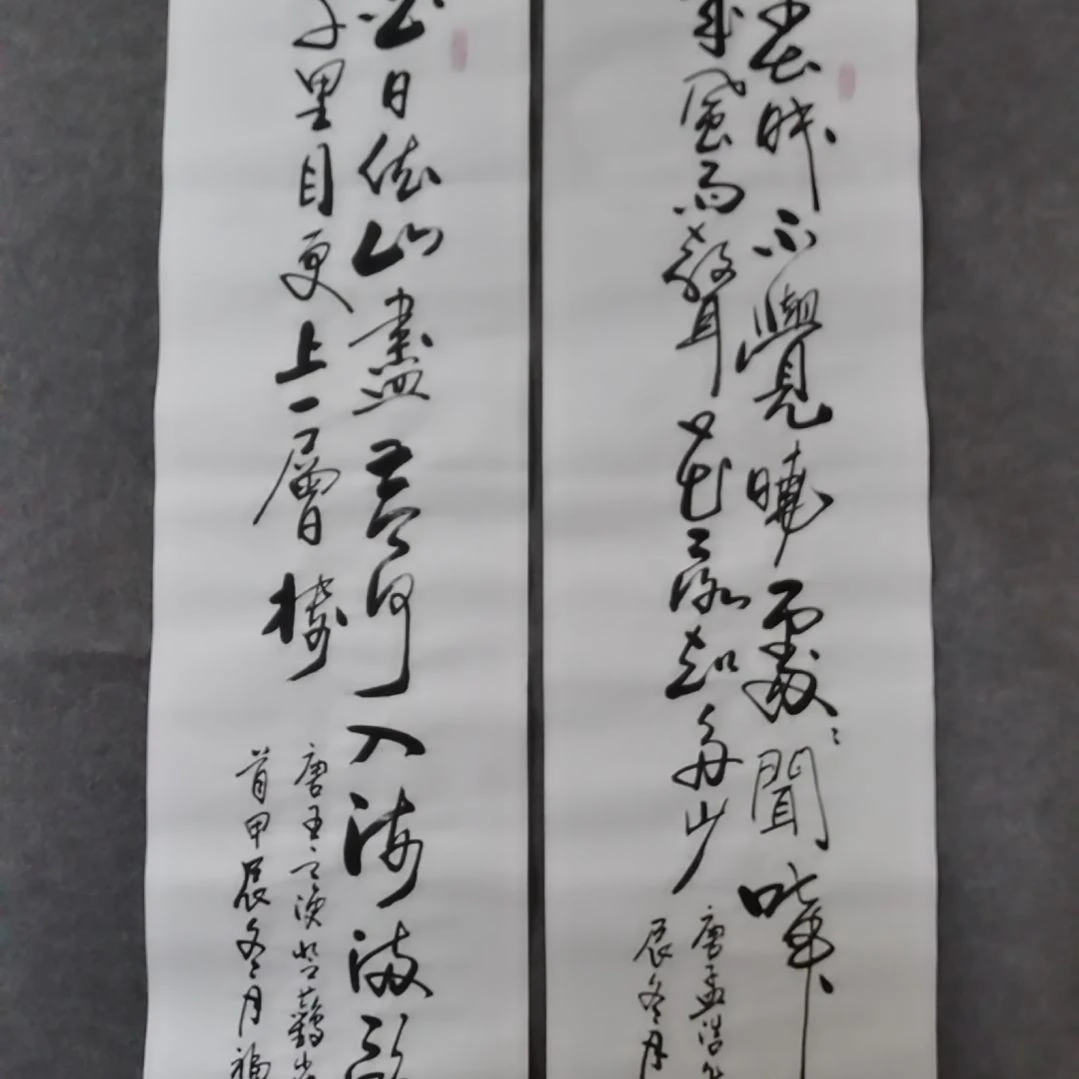 春眠不覺曉處〻聞啼
來風雨聲花落知多少
唐孟浩然
辰冬月
白日依山盡黃河入海流欲
千里目更上一層樓
唐王之渙登鸛雀
首甲辰冬月福